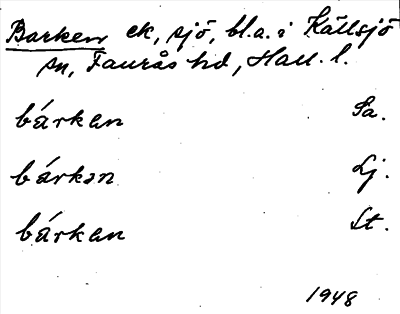 Barken ek, sjö, bl.a. i Källsjö
sn, Faurås hd, Hall. l.
bárkan Sa.
bárkən Lj.
bárkan St.
1948